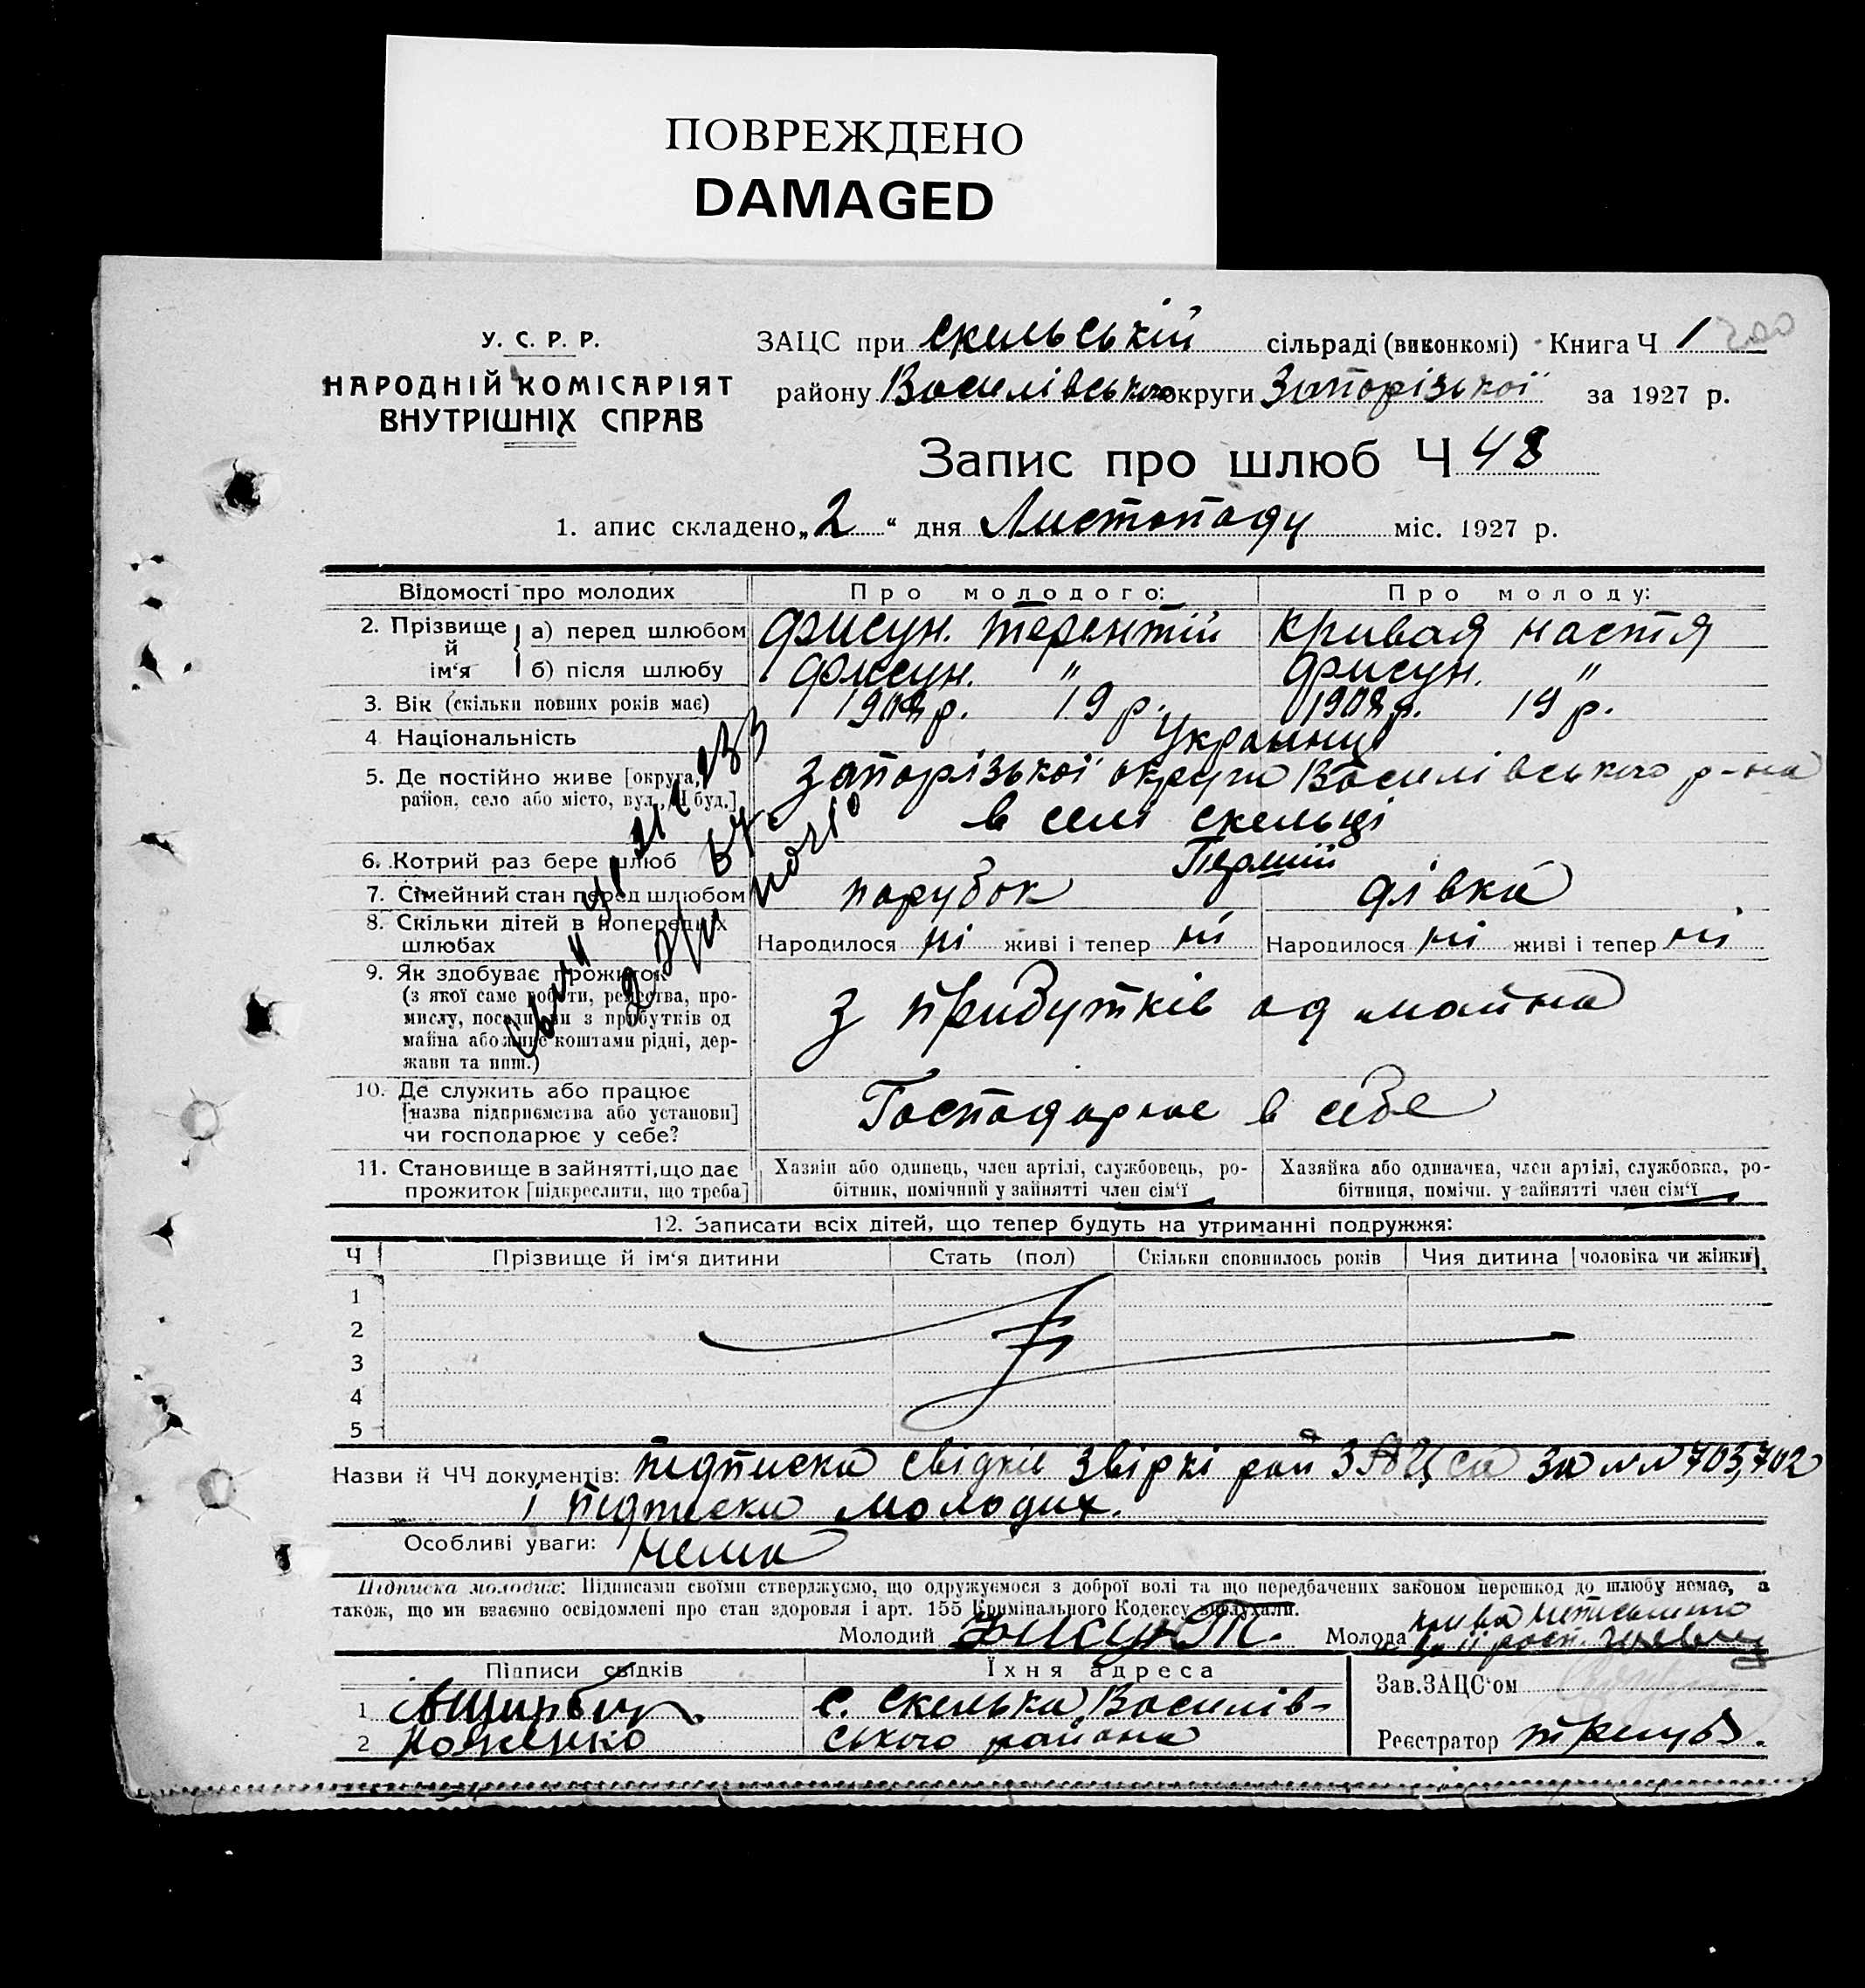 ПОВРЕЖДЕНО
DAMAGED
У. С. Р. Р.
НАРОДНІЙ КОМІСАРІЯТ
ВНУТРІШНІХ СПРАВ
ЗАЦС при Скельській сільраді (виконкомі) Книга Ч 1 200
району Василівського округи Запорізької за 1927 р.
Запис про шлюб Ч 48
1. апис складено „2“ дня Листопаду міс. 1927 р.
Відомості про молодих Про молодого: Про молоду:
2. Прізвище й ім‘я а) перед шлюбом Фисун. Терентій Кривая Настя
б) після шлюбу Фисун. " Фисун. "
3. Вік (скільки повних років має) 1908 р. 19 р. 1908 р. 19 р.
4. Національність Украинці
5. Де постійно живе [округа, Запорізької округи Василівського р-на
район, село або місто, вул., Ч буд.] в селі Скельці
6. Котрий раз бере шлюб Перший
7. Сімейний стан перед шлюбом парубок дівка
8. Скільки дітей в попередніх
шлюбах Народилося ні живі і тепер ні Народилося ні живі і тепер ні
9. Як здобуває прожиток
(з якої саме роботи, ремества, про-
мислу, посади чи з прибутків од з прибутків од майна
майна або живе коштами рідні, дер-
жави та инш.)
10. Де служить або працює
[назва підприємства або установи] Господарює в себе
чи господарює у себе?
11. Становище в зайнятті, що дає Хазяїн або одинець, член артілі, службовець, ро- Хазяйка або одиначка, член артілі, службовка, ро-
прожиток [підкреслити, що треба] бітник, помічний у зайнятті член сім‘ї бітниця, помічн. у зайнятті член сім‘ї
12. Записати всіх дітей, що тепер будуть на утриманні подружжя:
Ч Прізвище й ім‘я дитини Стать (пол) Скільки сповнилось років Чия дитина [чоловіка чи жінки]
1
2
3
4
5
Назви й ЧЧ документів: підписка свідків звіркі рай ЗАЦСа за №№ 703, 702
і підписки молодих.
Особливі уваги: Нема
Підписка молодих: Підписами своїми стверджуємо, що одружуємося з доброї волі та що передбачених законом перешкод до шлюбу немає, а
також, що ми взаємно освідомлені про стан здоровля і арт. 155 Кримінального Кодексу вислухали.
Молодий Фисун Т. Молода
Підписи свідків Їхня адреса Зав.ЗАЦС‘ом
1 с. Скелька, Василів-
2 Ноженко ського района Реєстратор